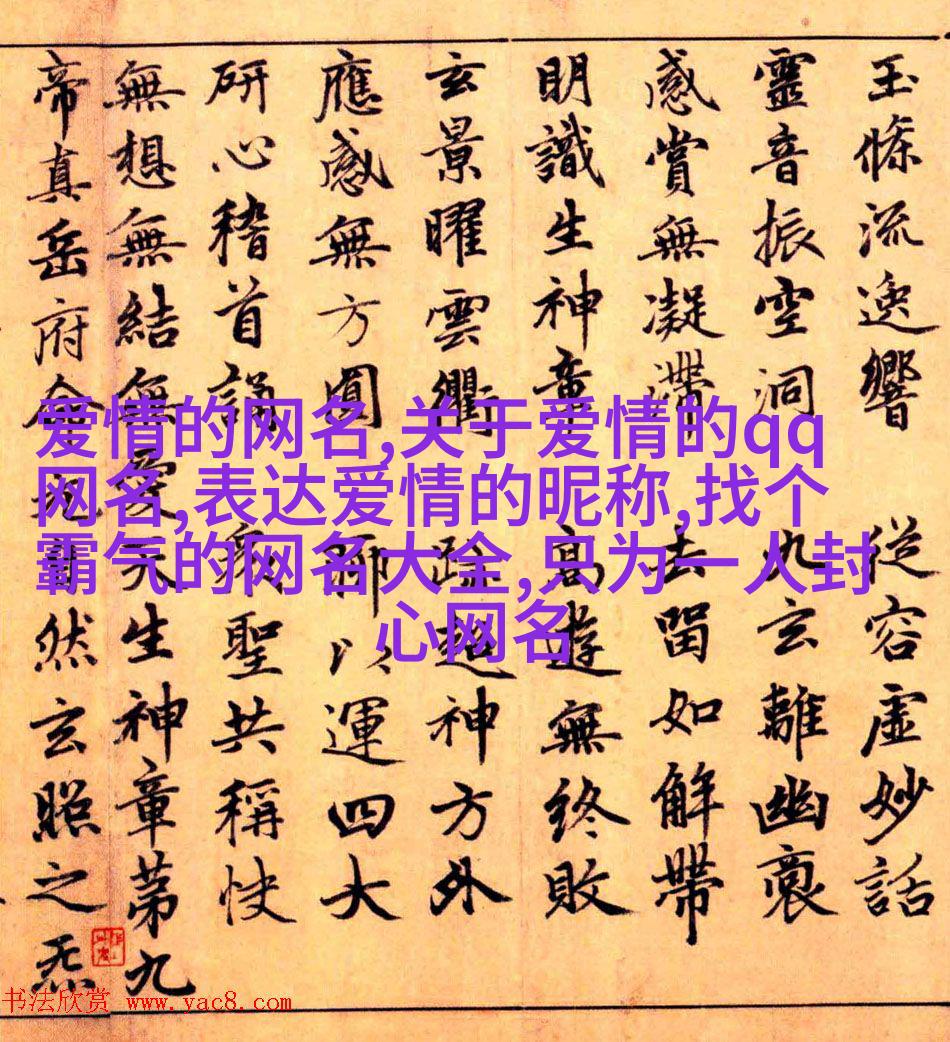 玉條流逸響 從容虛妙話
靈音振空洞 九玄離幽
感賞無凝滯 去留如解帶
明識生神章 高遊無終敗
玄景曜雲衢 跡超神方外
應感無方圓 聊以運四大
研心稽首誦 衆聖共稱快
無想無結無愛天生神章第九
帝真岳府命 然玄照之炁
爱情的网名,关于爱情的qq
网名,表达爱情的昵称,找个
霸气的网名大全,只为一人封
心网名
书法欣赏 www.yac8.com